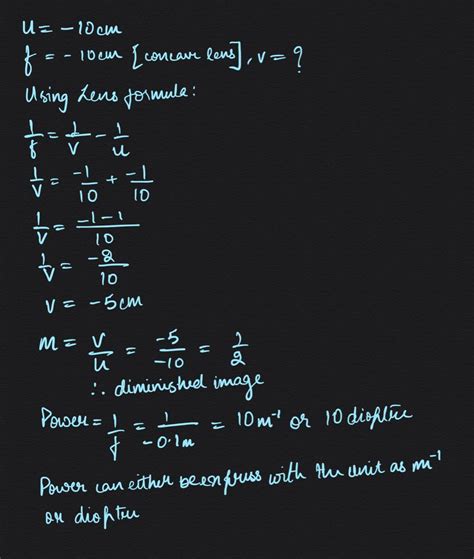 u = -10cm
f = -10cm [concave lens], v = ?
Using Lens formula:
1/f = 1/v - 1/u
1/v = -1/10 + -1/10
1/v = -1-1/10
1/v = -2/10
v = -5cm
m = v/u = -5/-10 = 1/2
∴ diminished image
Power = 1/f = 1/-0.1m = 10m⁻¹ or 10 dioptre
Power can either be express with the unit as m⁻¹
or dioptre